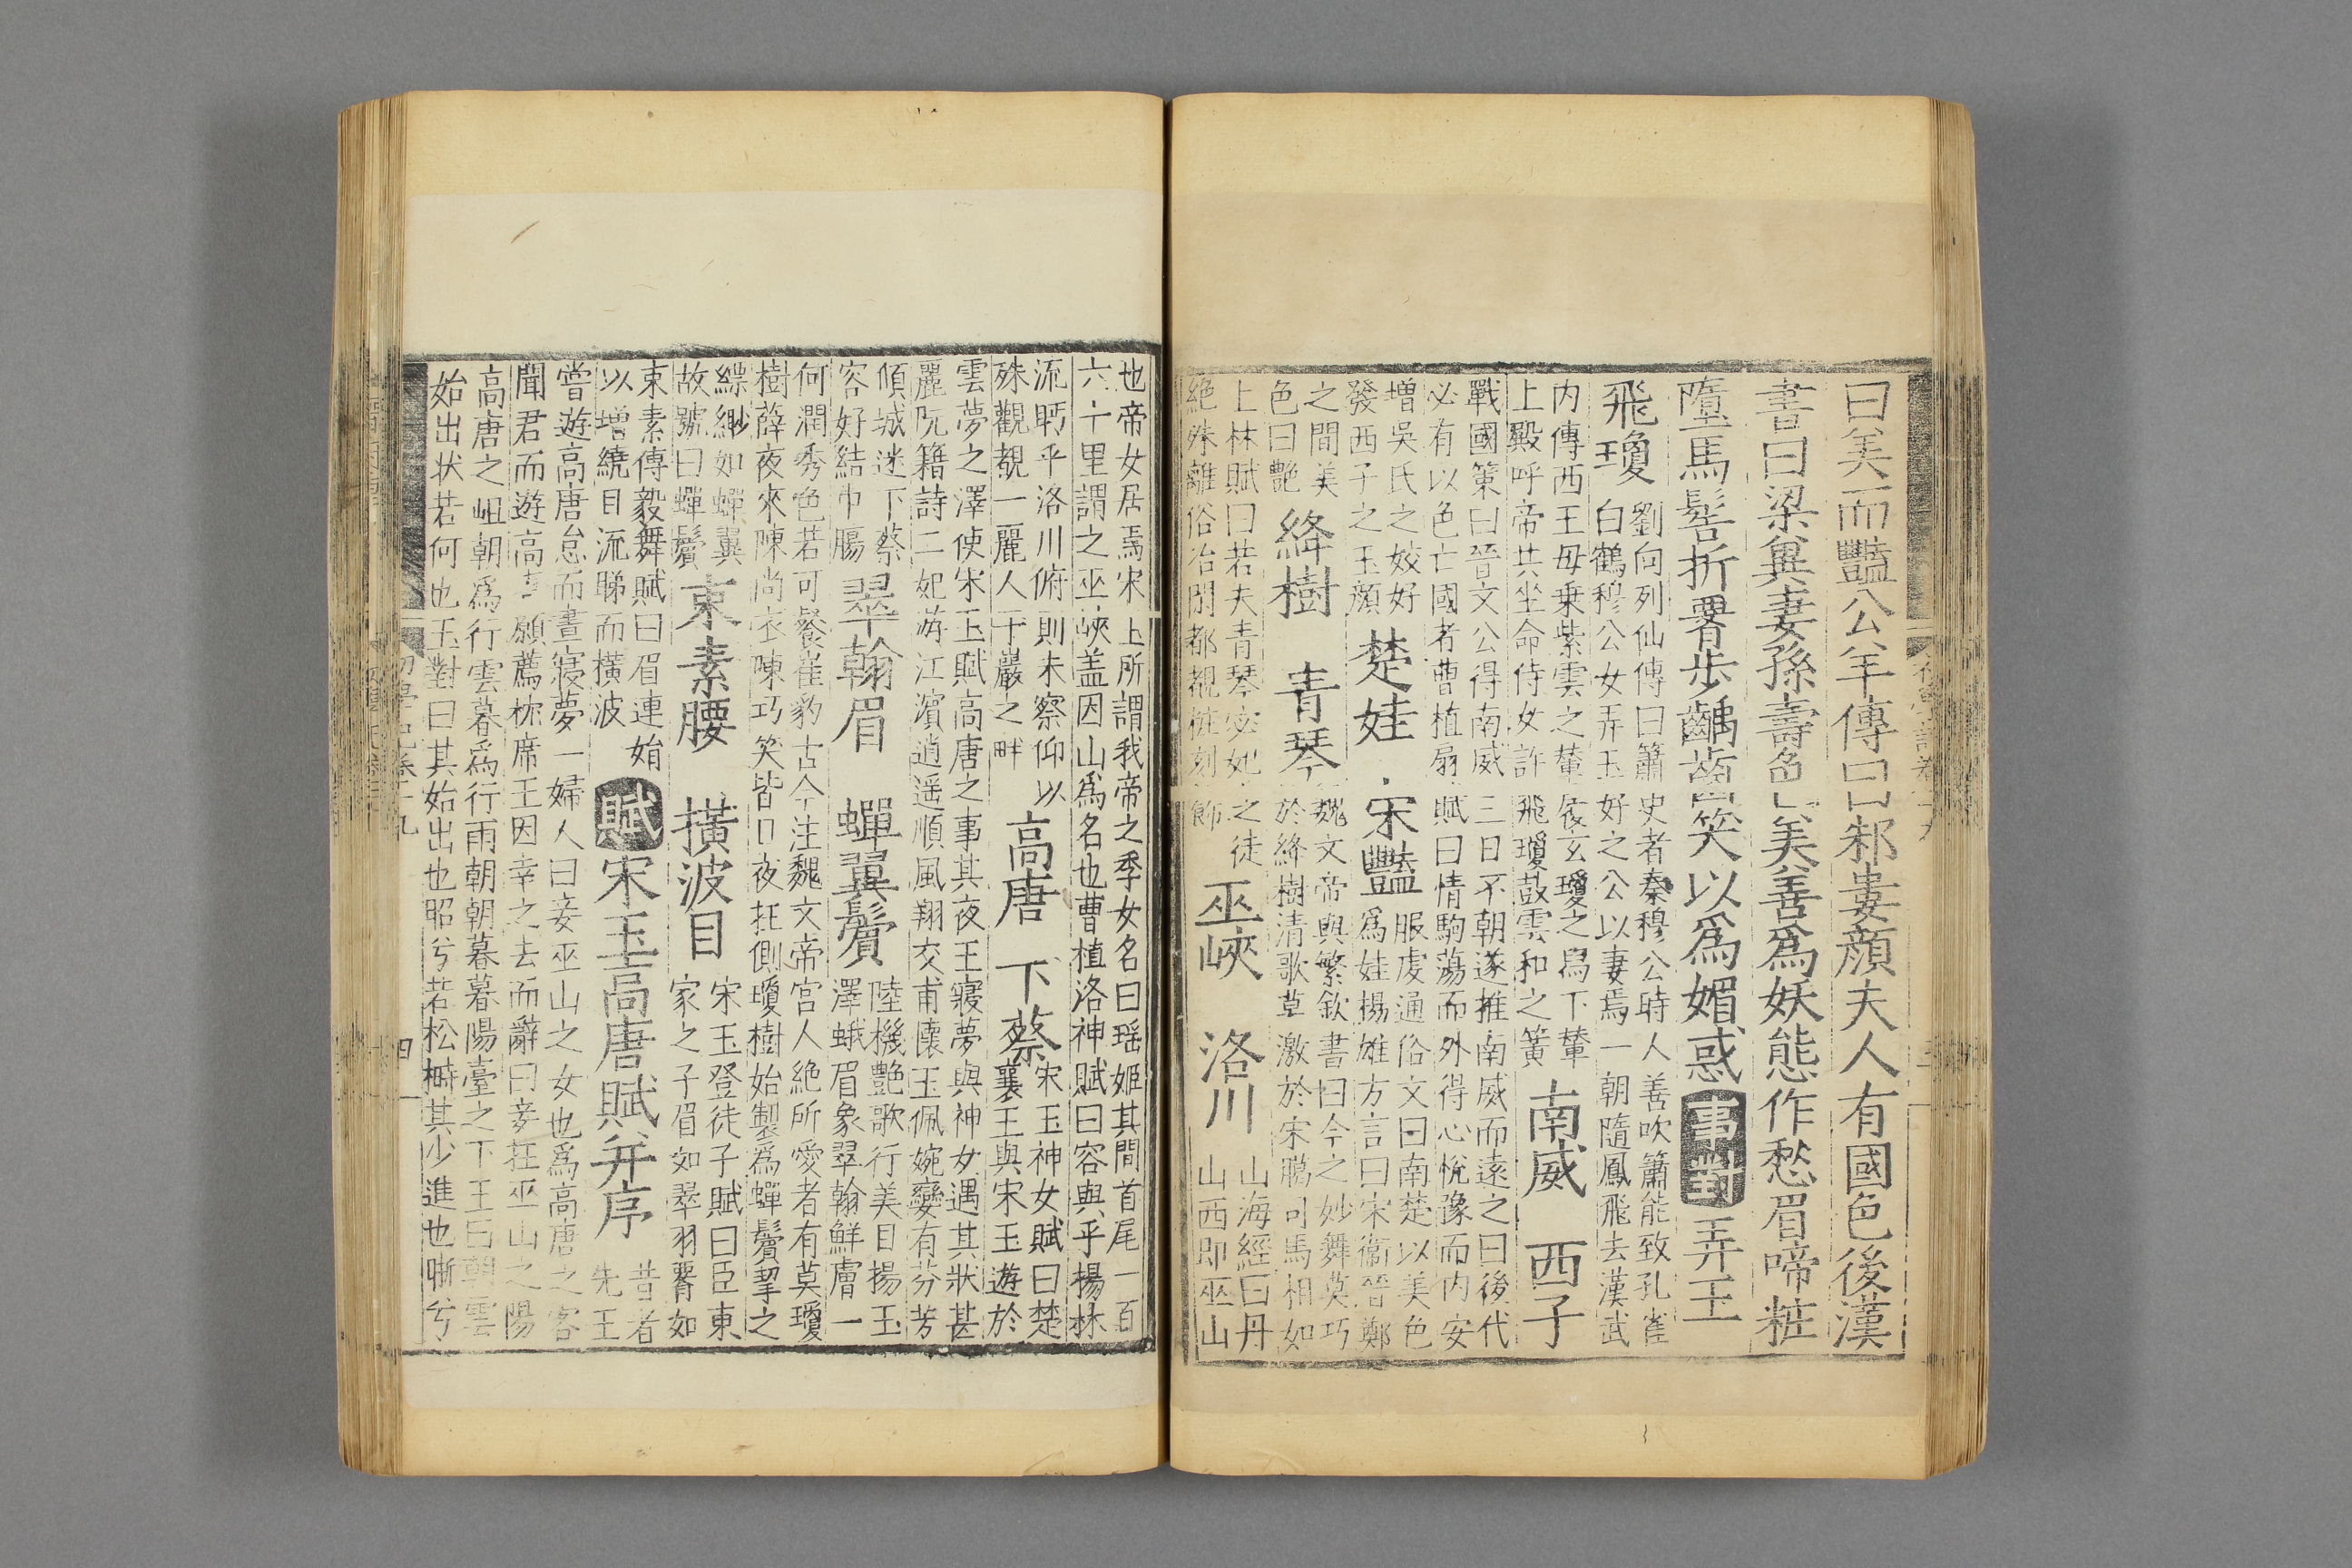 曰美而豔公羊傳曰邾婁顏夫人有國色後漢
書曰梁冀妻孫壽色美善爲妖態作愁眉啼粧
墮馬髻折署步齲齒笑以爲媚惑事對弄玉
飛瓊
劉向列仙傳曰簫史者秦穆公時人善吹簫能致孔雀
白鶴穆公女弄玉好之公以妻焉一朝隨鳳飛去漢武
内傳西王母乗紫雲之輦後玄瓊之爲下輦
上殿呼帝共坐命侍女許飛瓊鼓雲和之簧
南威 西子
戰國策曰晉文公得南威三日不朝遂推南威而遠之曰後代
必有以色亡國者曹植扇賦曰情駒蕩而外得心悅豫而内安
增吳氏之姣好
發西子之玉顏
楚娃 宋豔
服虔通俗文曰南楚以美色
爲娃揚雄方言曰宋衛晉鄭
之間美
色曰艷
絳樹 青琴
魏文帝與繁欽書曰今之妙舞莫巧
於絳樹清歌草激於宋臈司馬相如
上林賦曰若夫青琴宓妃之徒
絶殊離俗冶閑都靚粧刻飾
巫峽 洛川
山海經曰丹
山西即巫山
也帝女居焉宋上所謂我帝之季女名曰瑤姬其間首尾一百
六十里謂之巫峽盖因山爲名也曹植洛神賦曰容與乎揚林
流眄乎洛川俯則未察仰以
殊觀覩一麗人于巖之畔
高唐 下蔡
宋玉神女賦曰楚
襄王與宋玉遊於
雲夢之澤使宋玉賦高唐之事其夜王寢夢與神女遇其狀甚
麗阮籍詩二妃游江濵逍遥順風翔交甫懷玉佩婉孌有芬芳
傾城迷下蔡
容好結巾膓
翠翰眉 蟬翼鬢
陸機艷歌行美目揚玉
澤蛾眉象翠翰鮮膚一
何潤秀色若可餐崔豹古今注魏文帝宮人絶所愛者有莫瓊
樹薛夜來陳尚衣陳巧笑皆日夜在側瓊樹始製爲蟬鬢挈之
縹緲如蟬翼
故號曰蟬鬢
束素腰 橫波目
宋玉登徒子賦曰臣東
家之子眉如翠羽署如
束素傳毅舞賦曰眉連娟
以增繞目流睇而橫波
賦宋玉高唐賦并序
昔者
先王
嘗遊高唐怠而晝寢夢一婦人曰妾巫山之女也爲高唐之客
聞君而遊高唐願薦枕席王因幸之去而辭曰妾在巫山之陽
高唐之岨朝爲行雲暮爲行雨朝朝暮暮陽臺之下王曰朝雲
始出狀若何也玉對曰其始出也㫼兮若松榯其少進也晰兮